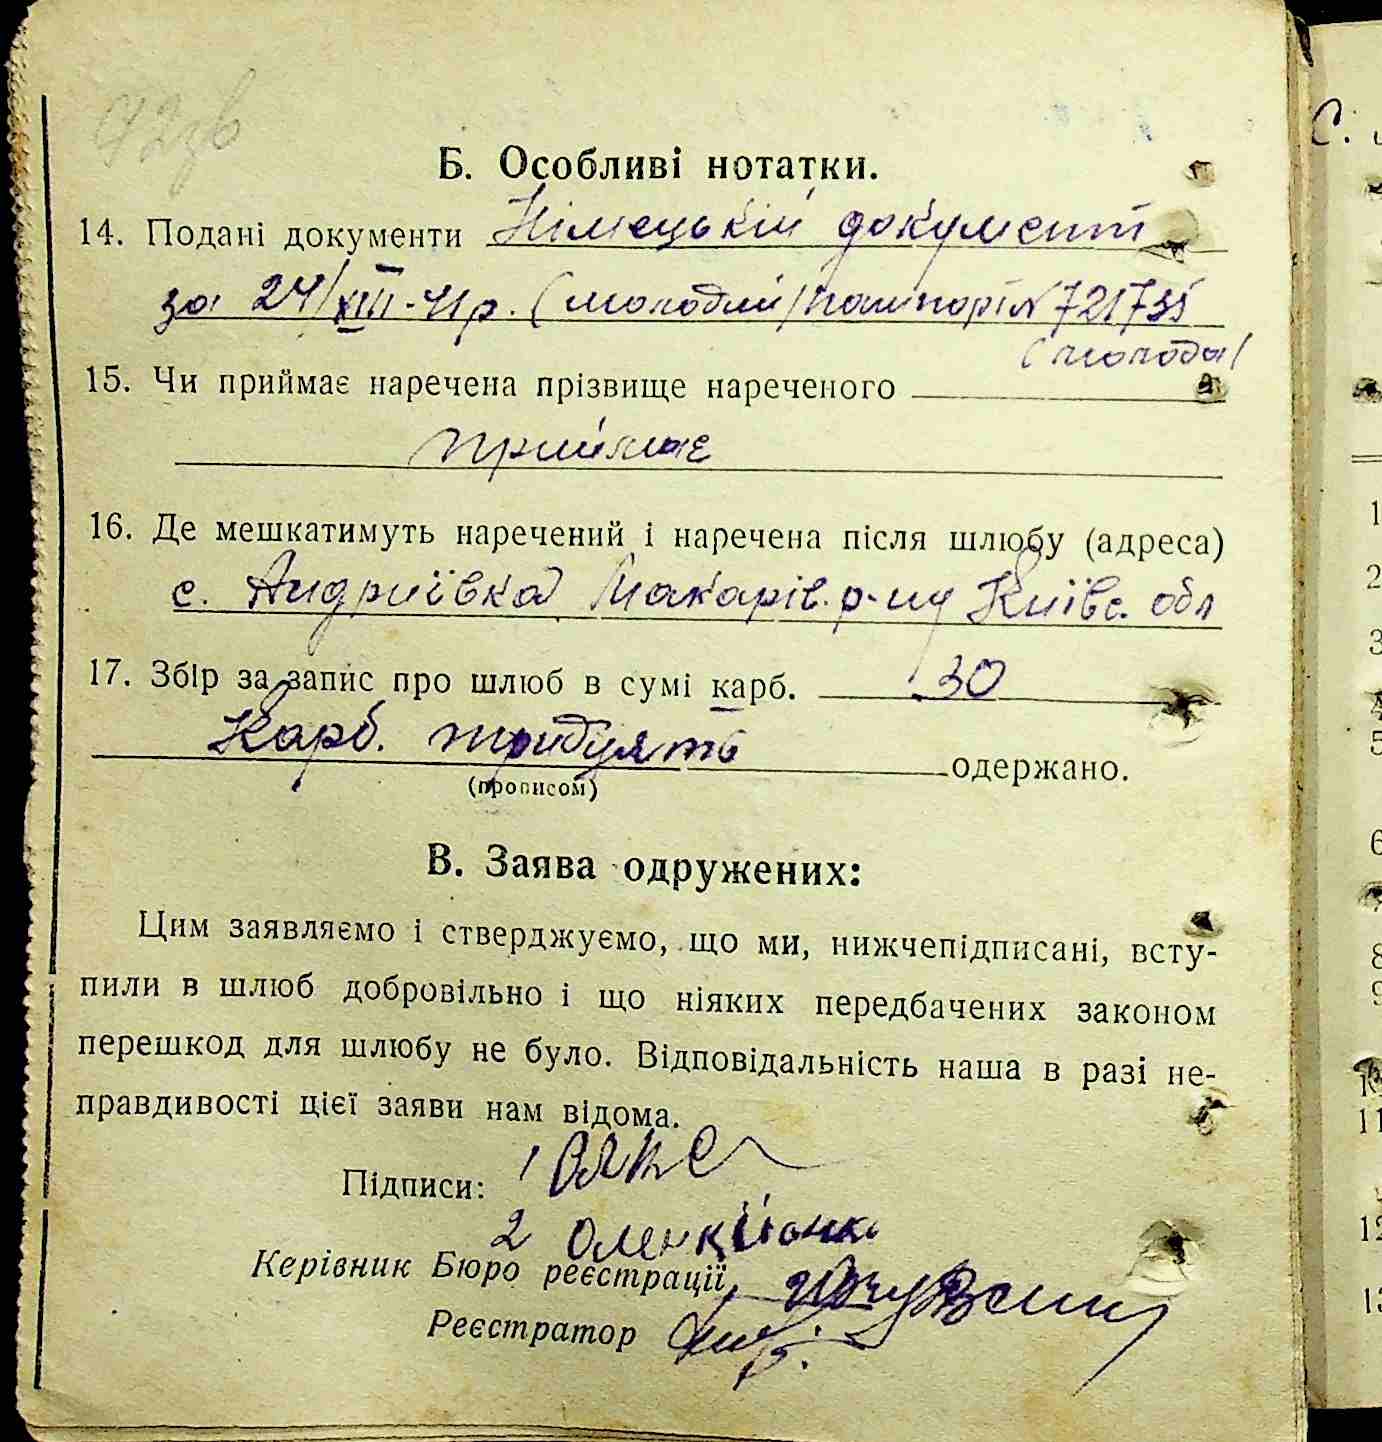 Б. Особливі нотатки.
14. Подані документи Німецькій документ
за 24/VIII-41р. (молодий) паспорт N 721735
(молода)
15. Чи приймає наречена прізвище нареченого
приймає
16. Де мешкатимуть наречений і наречена після шлюбу (адреса)
с. Андриївка Макарів. р-ну Київс. обл
17. Збір за запис про шлюб в сумі карб. 30
Карб. тридцять одержано.
(прописом)
В. Заява одружених:
Цим заявляємо і стверджуємо, що ми, нижчепідписані, всту-
пили в шлюб добровільно і що ніяких передбачених законом
перешкод для шлюбу не було. Відповідальність наша в разі не-
правдивості цієї заяви нам відома.
Підписи: 1
2
Керівник Бюро реєстрації,
Реєстратор